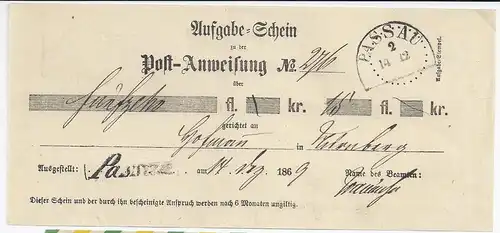 Aufgabe-Schein
zu der
Post-Anweisung № 276
über
fünfzehn fl. \ kr. 15 fl. kr.
gerichtet an
Hofmann in Nürnberg
Ausgestellt: Passau am 14 Dez 1869 Name des Beamten:
Dieser Schein und der durch ihn bescheinigte Anspruch werden nach 6 Monaten ungiltig.
PASSAU
2
14 12
Aufgabs-Stempel.